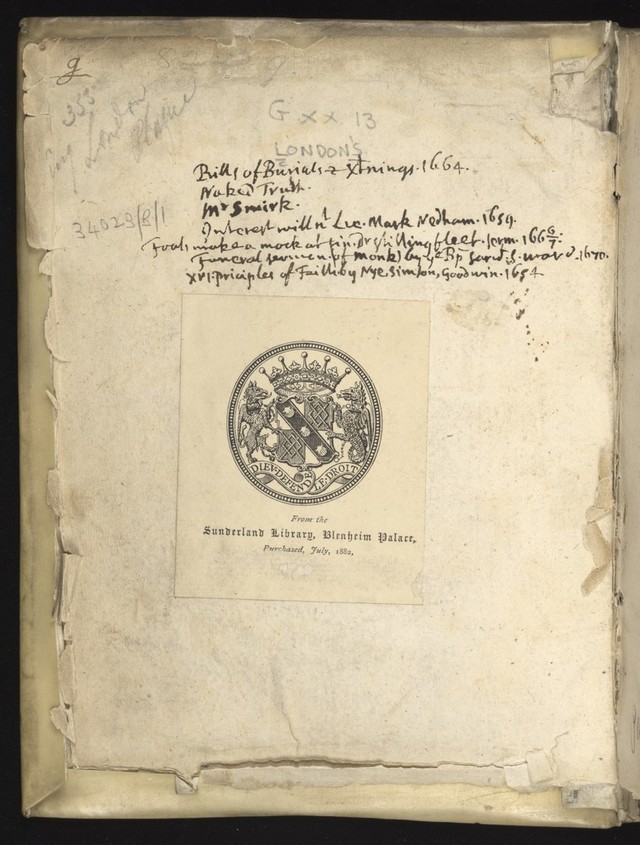 g
353
London
Plague
G xx 13
LONDON'S
34029/8/1
Bills of Burials & Xtnings. 1664.
Naked Truth.
Mr Smirk.
Interest will nt Lie. Mark Nedham. 1659.
Fools make a mock at sin. Dr Stillingfleet. serm. 166 6/7.
Funeral sermon of Monk) by ye Bp Sarū. S. Ward. 1670.
XVI. priciples of Faith by Nye. Simson, Goodwin. 1654
DIEV·DEFEND LE·DROIT
From the
Sunderland Library, Blenheim Palace,
Purchased, July, 1882,